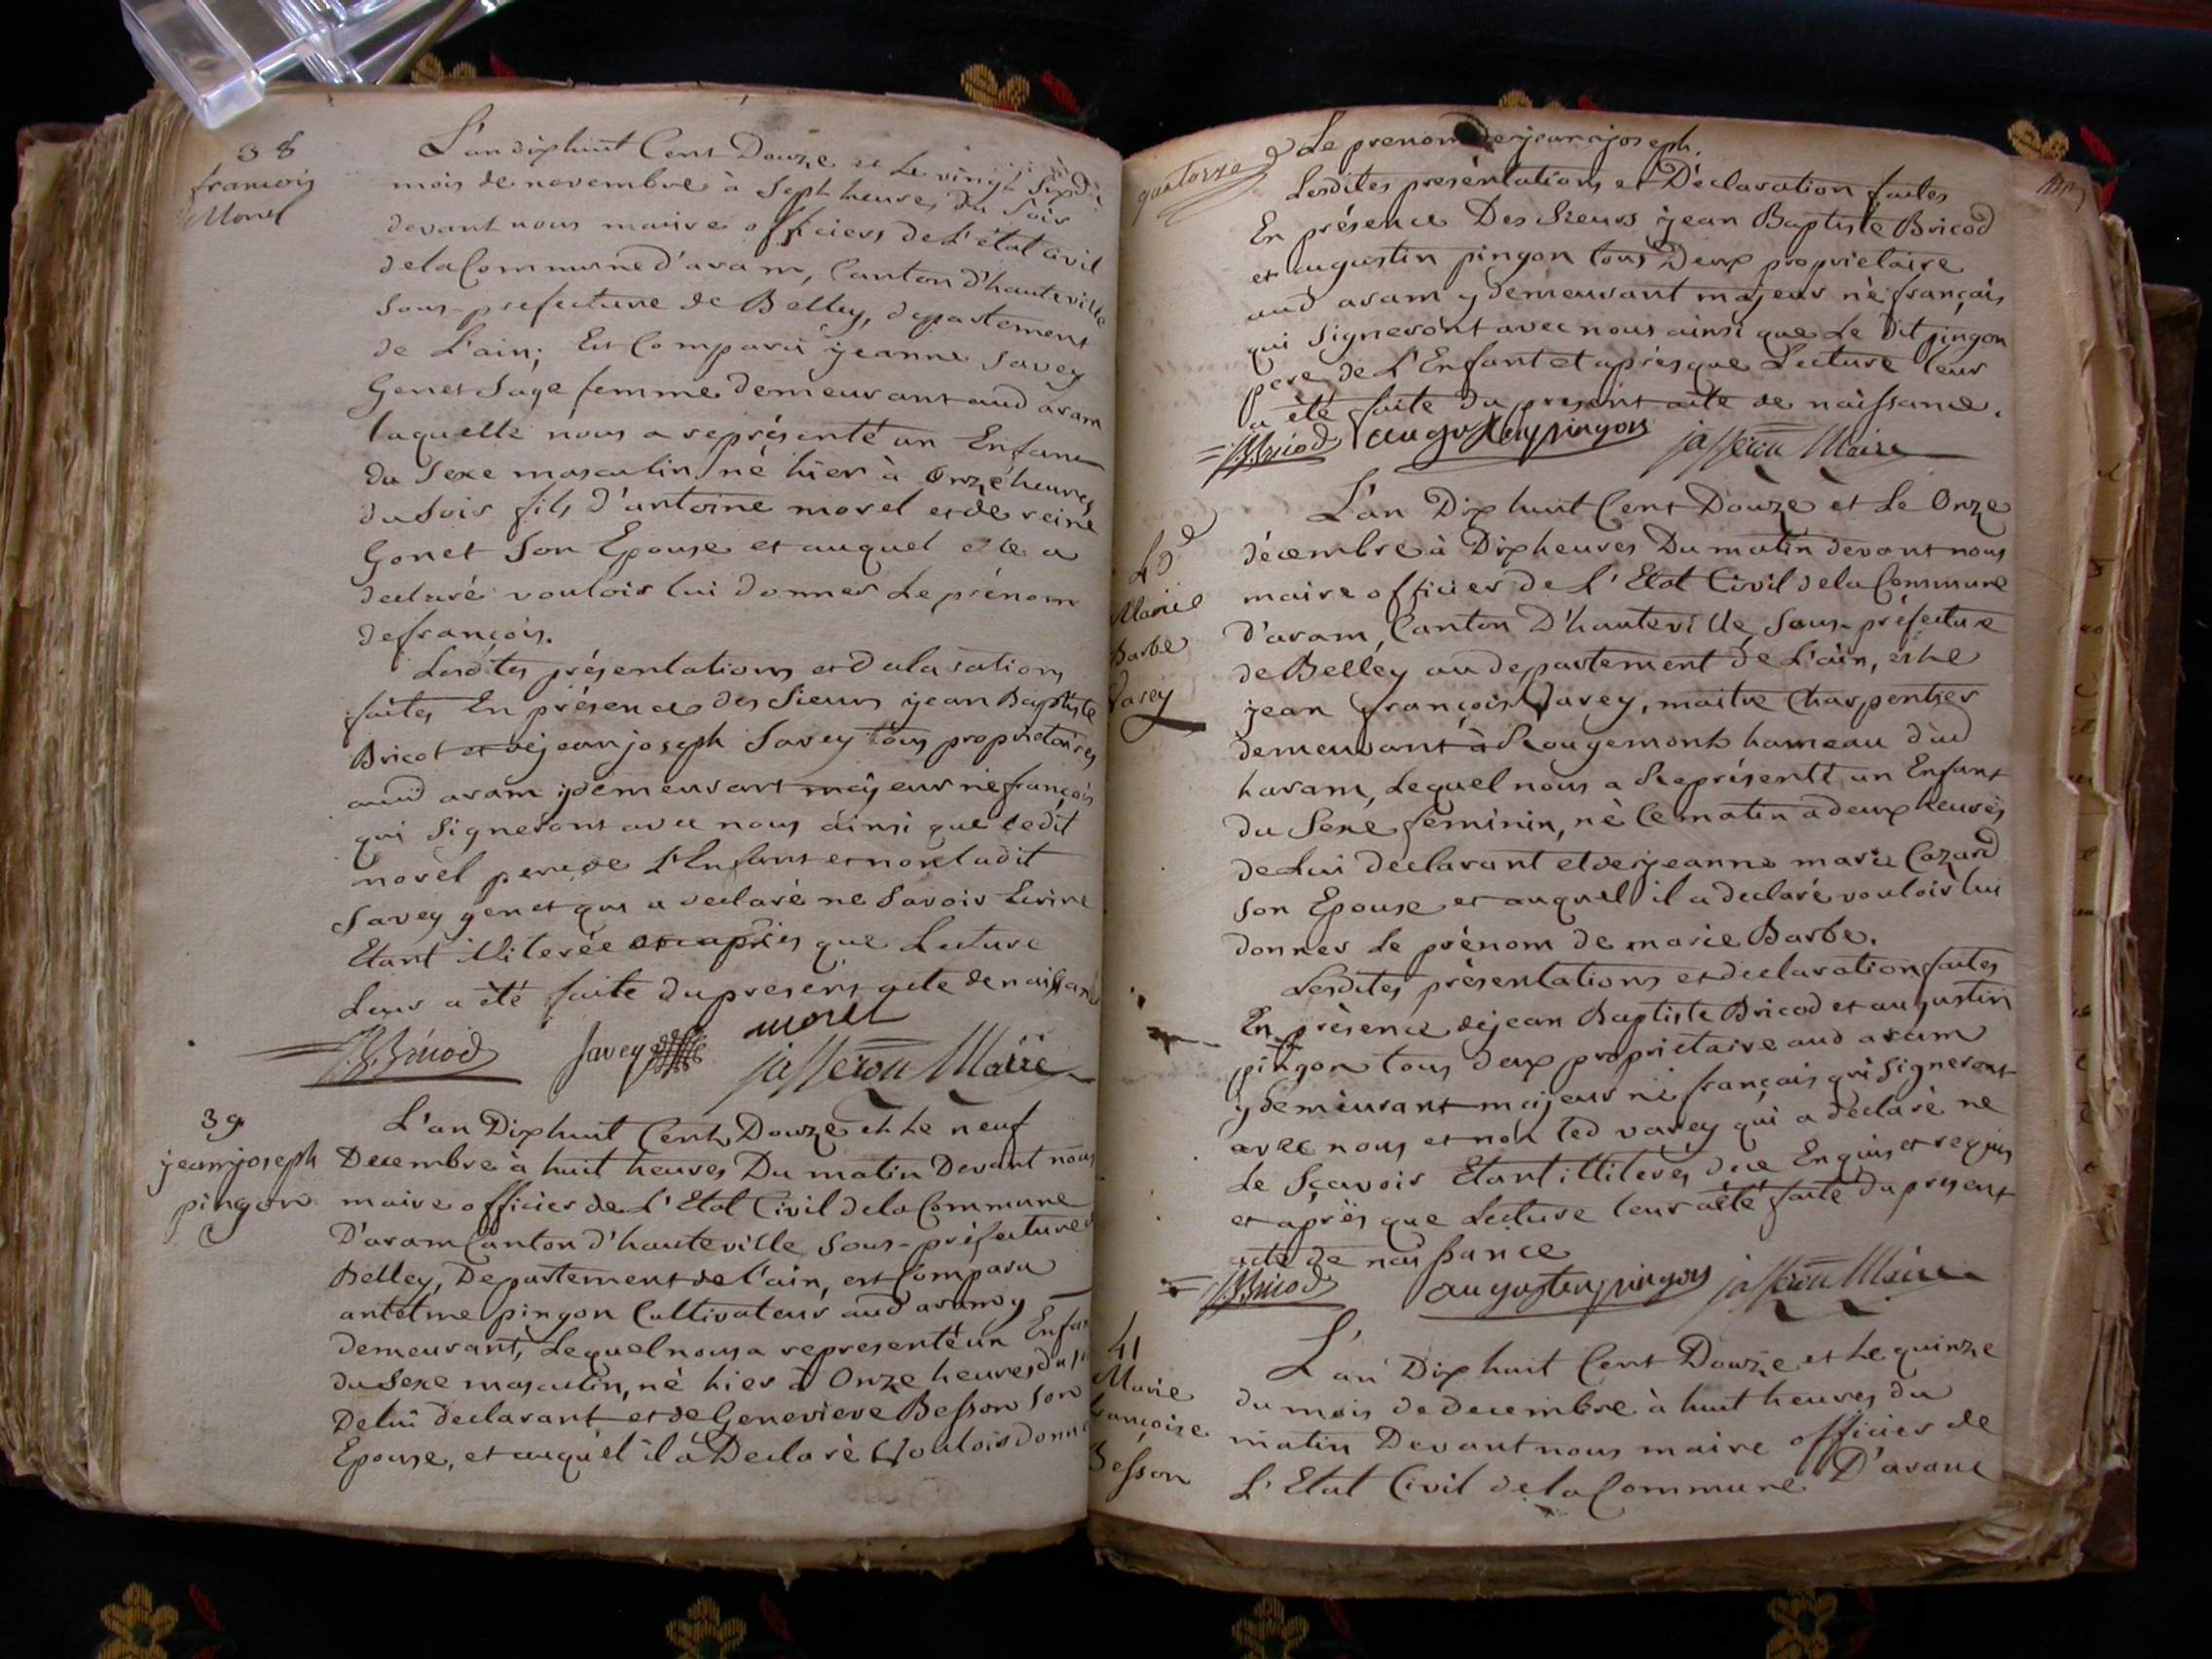 38
francois
Morel
L'an dixhuit Cent Douze et Le vingt Six du
mois de novembre à Sept heures du Soir
devant nous maire officiers de L'état Civil
dela Commune d'aram, Canton d'hauteville
Sous-prefecture de Belley, departement
de L'ain; Est Comparü jeanne Savey
Genet Sage femme demeurant aud aram
laquelle nous a représenté un Enfant
du Sexe masculin né hier à Onze heures
du Soir fils d'antoine morel et de reine
Gonet Son Epouse et auquel elle a
declaré vouloir lui donner Le prénom
de françois.
Lesdites présentations et dalaration
faites En présence des Sieurs jean Baptiste
Bricot et dejean joseph Savey tous proprietaires
aud aram ydemeurant majeur né françois
qui Signeront avec nous ainsi que ledit
morel pere de L'Enfant et non ladit
Savey genet qui a declaré ne Savoir Ecrire
Etant illiterée et après que Lecture
Leur a été faite du present acte de naissan
JBBricod Savey morel
jasseron Maire
39
jean joseph
pingon
L'an Dixhuit Cent Douze et Le neuf
Decembre à huit heures Du matin Devant nous
maire officier de L'Etat Civil dela Commune
D'aram Canton d'hauteville Sous-préfecture
Belley, Departement de l'ain, est Comparu
antelme pingon Cultivateur aud aram y
demeurant, Lequel nous a representé un Enfan
du Sexe masculin, né hier à Onze heures du
De lui declarant et de Genevieve Besson Son
Epouse, et auquel il a Declaré Vouloir donner
quatorze
Le prenom de jean joseph.
Lesdites presentations et Déclaration faites
En présence Des Sieurs jean Baptiste Bricod
et augustin pingon tous Deux proprietaire
aud aram y demeurant majeur né français
qui Signeront avec nous ainsi que Le Dit pingon
pere de L'Enfant et après que Lecture leur
a été faite du present acte de naissance.
JBBricod augustin pingon jasseron Maire
40e
Marie
Barbe
Varey
L'an Dix huit Cent Douze et Le Onze
décembre à Dix heures Du matin devant nous
maire officier de L'Etat Civil dela Commune
d'aram, Canton D'hauteville, Sous-préfecture
de Belley au departement de L'ain, est Le
jean françois Varey, maitre Charpentier
demeurant à Rougemont hameau dud
haram, Lequel nous a Représenté un Enfant
du Sexe féminin, né Ce matin a deux heures
de Lui declarant et de jeanne marie Cazard
Son Epouse et auquel il a declaré vouloir lui
donner Le prénom de marie Barbe.
Lesdites présentations et declaration faites
En présence dejean Baptiste Bricod et augustin
pingon tous deux proprietaire aud aram
ydemeurant majeur né français qui Signeront
avec nous et non led varey qui a declaré ne
Le Sçavoir Etant illiteré de Enquis et requis
et après que Lecture leur a été faite du present
acte de naissance
JBBricod augustin pingon jasseron Maire
41
Marie
françoise
Besson
L'an Dix huit Cent Douze et Le quinze
du mois de decembre à huit heures du
matin Devant nous maire officier de
L'Etat Civil dela Commune D'arane